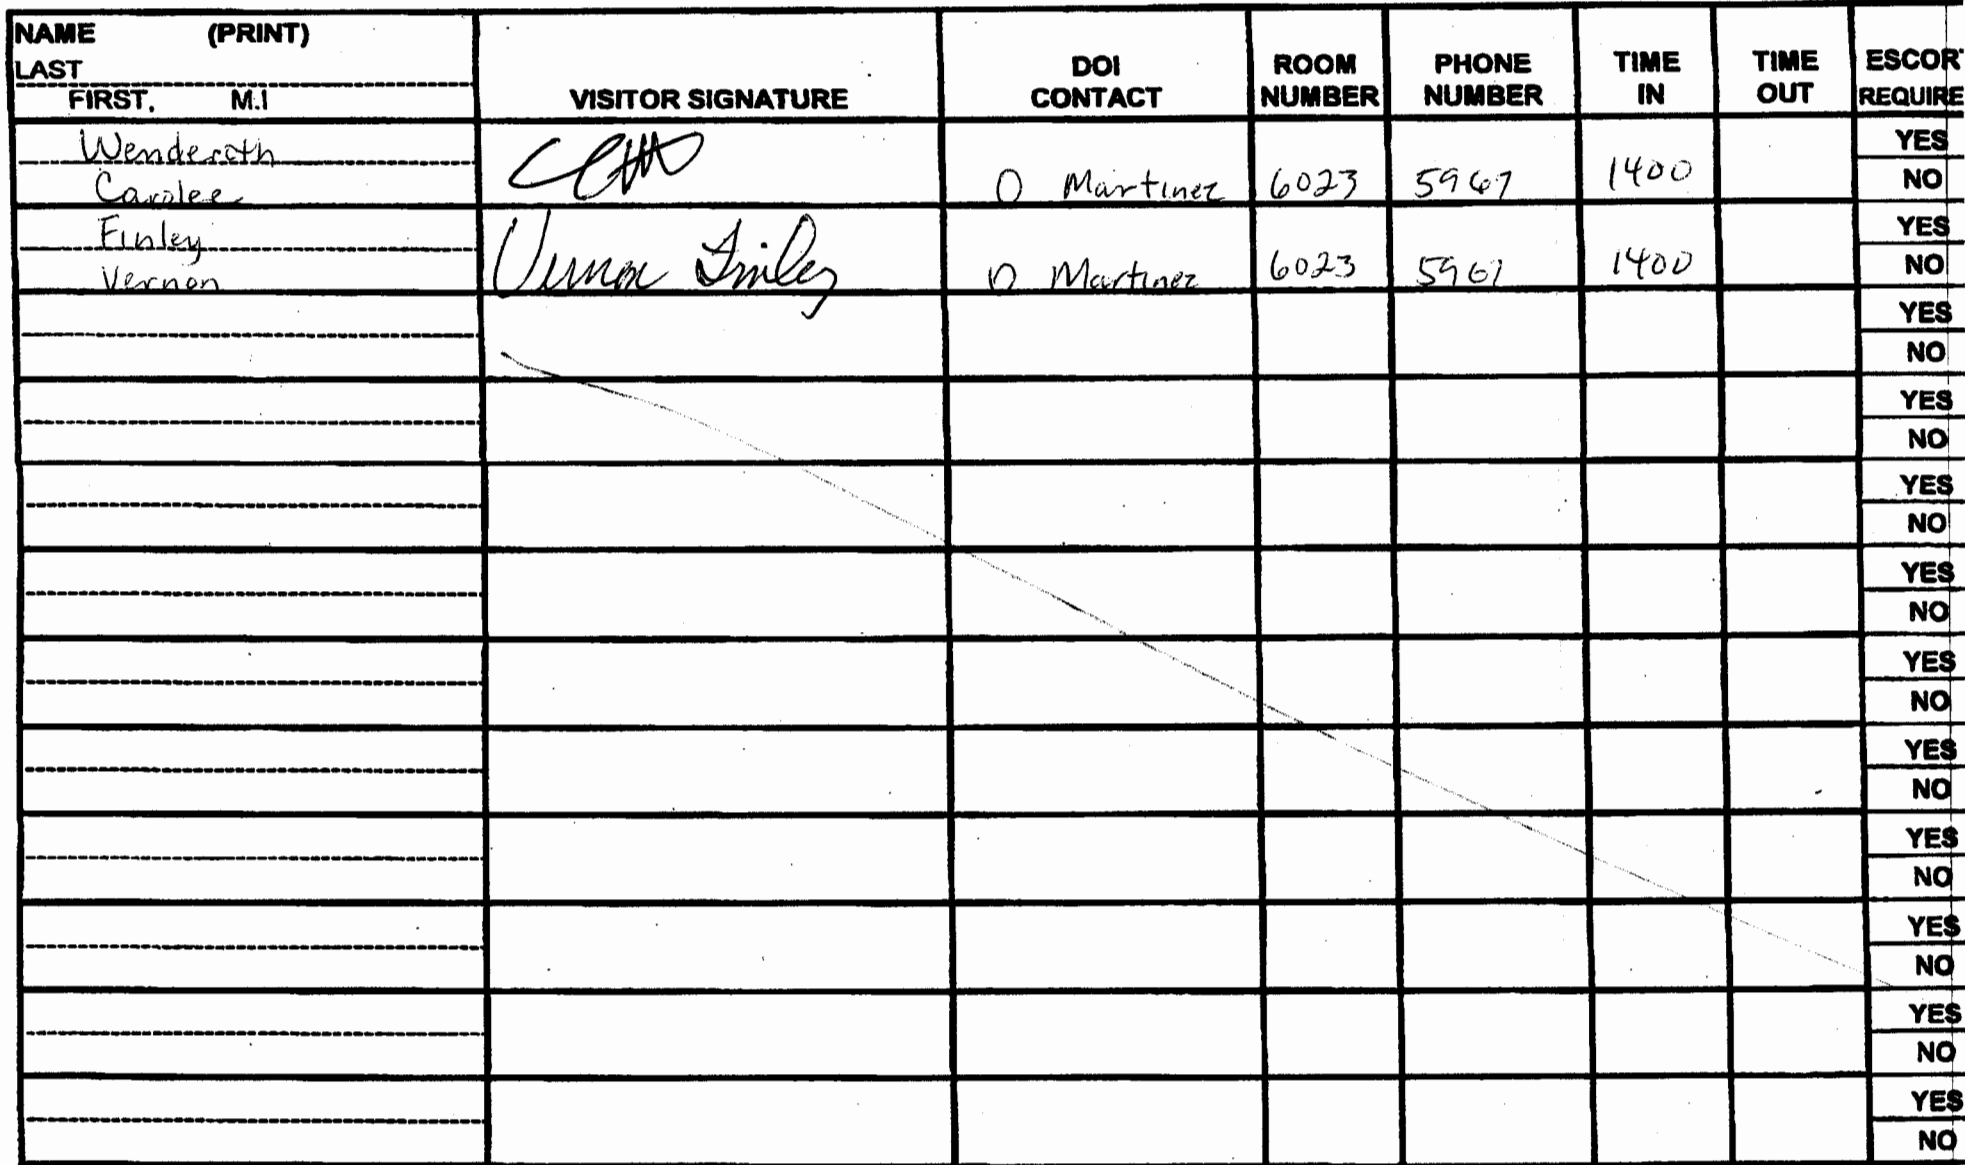 NAME (PRINT)
LAST
FIRST, M.I
VISITOR SIGNATURE
DOI
CONTACT
ROOM
NUMBER
PHONE
NUMBER
TIME
IN
TIME
OUT
ESCORT
REQUIRE
Wenderoth
Carolee
O Martinez
6023
5967
1400
YES
NO
Finley
Vernon
Vernon Finley
O Martinez
6023
5967
1400
YES
NO
YES
NO
YES
NO
YES
NO
YES
NO
YES
NO
YES
NO
YES
NO
YES
NO
YES
NO
YES
NO